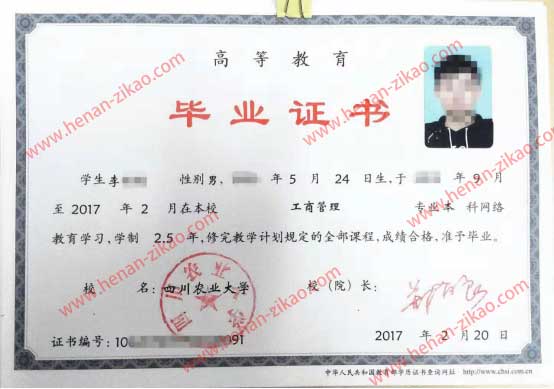 高等教育
毕业证书
学生 李 性别 男, 年 5 月 24 日生,于 年 9 月
至 2017 年 2 月在本校 工商管理 专业 本 科网络
教育学习,学制 2.5 年,修完教学计划规定的全部课程,成绩合格,准予毕业。
校 名: 四川农业大学 校(院)长:
四川农业大学
证书编号: 10 091 2017 年 2 月 20 日
中华人民共和国教育部学历证书查询网址: http://www.chsi.com.cn
www.henan-zikao.com
www.henan-zikao.com
www.henan-zikao.com
www.henan-zikao.com
www.henan-zikao.com
www.henan-zikao.com